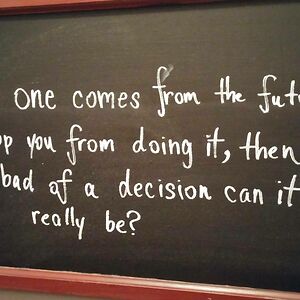 one comes from the futu
pp you from doing it, then
bad of a decision can it
really be?